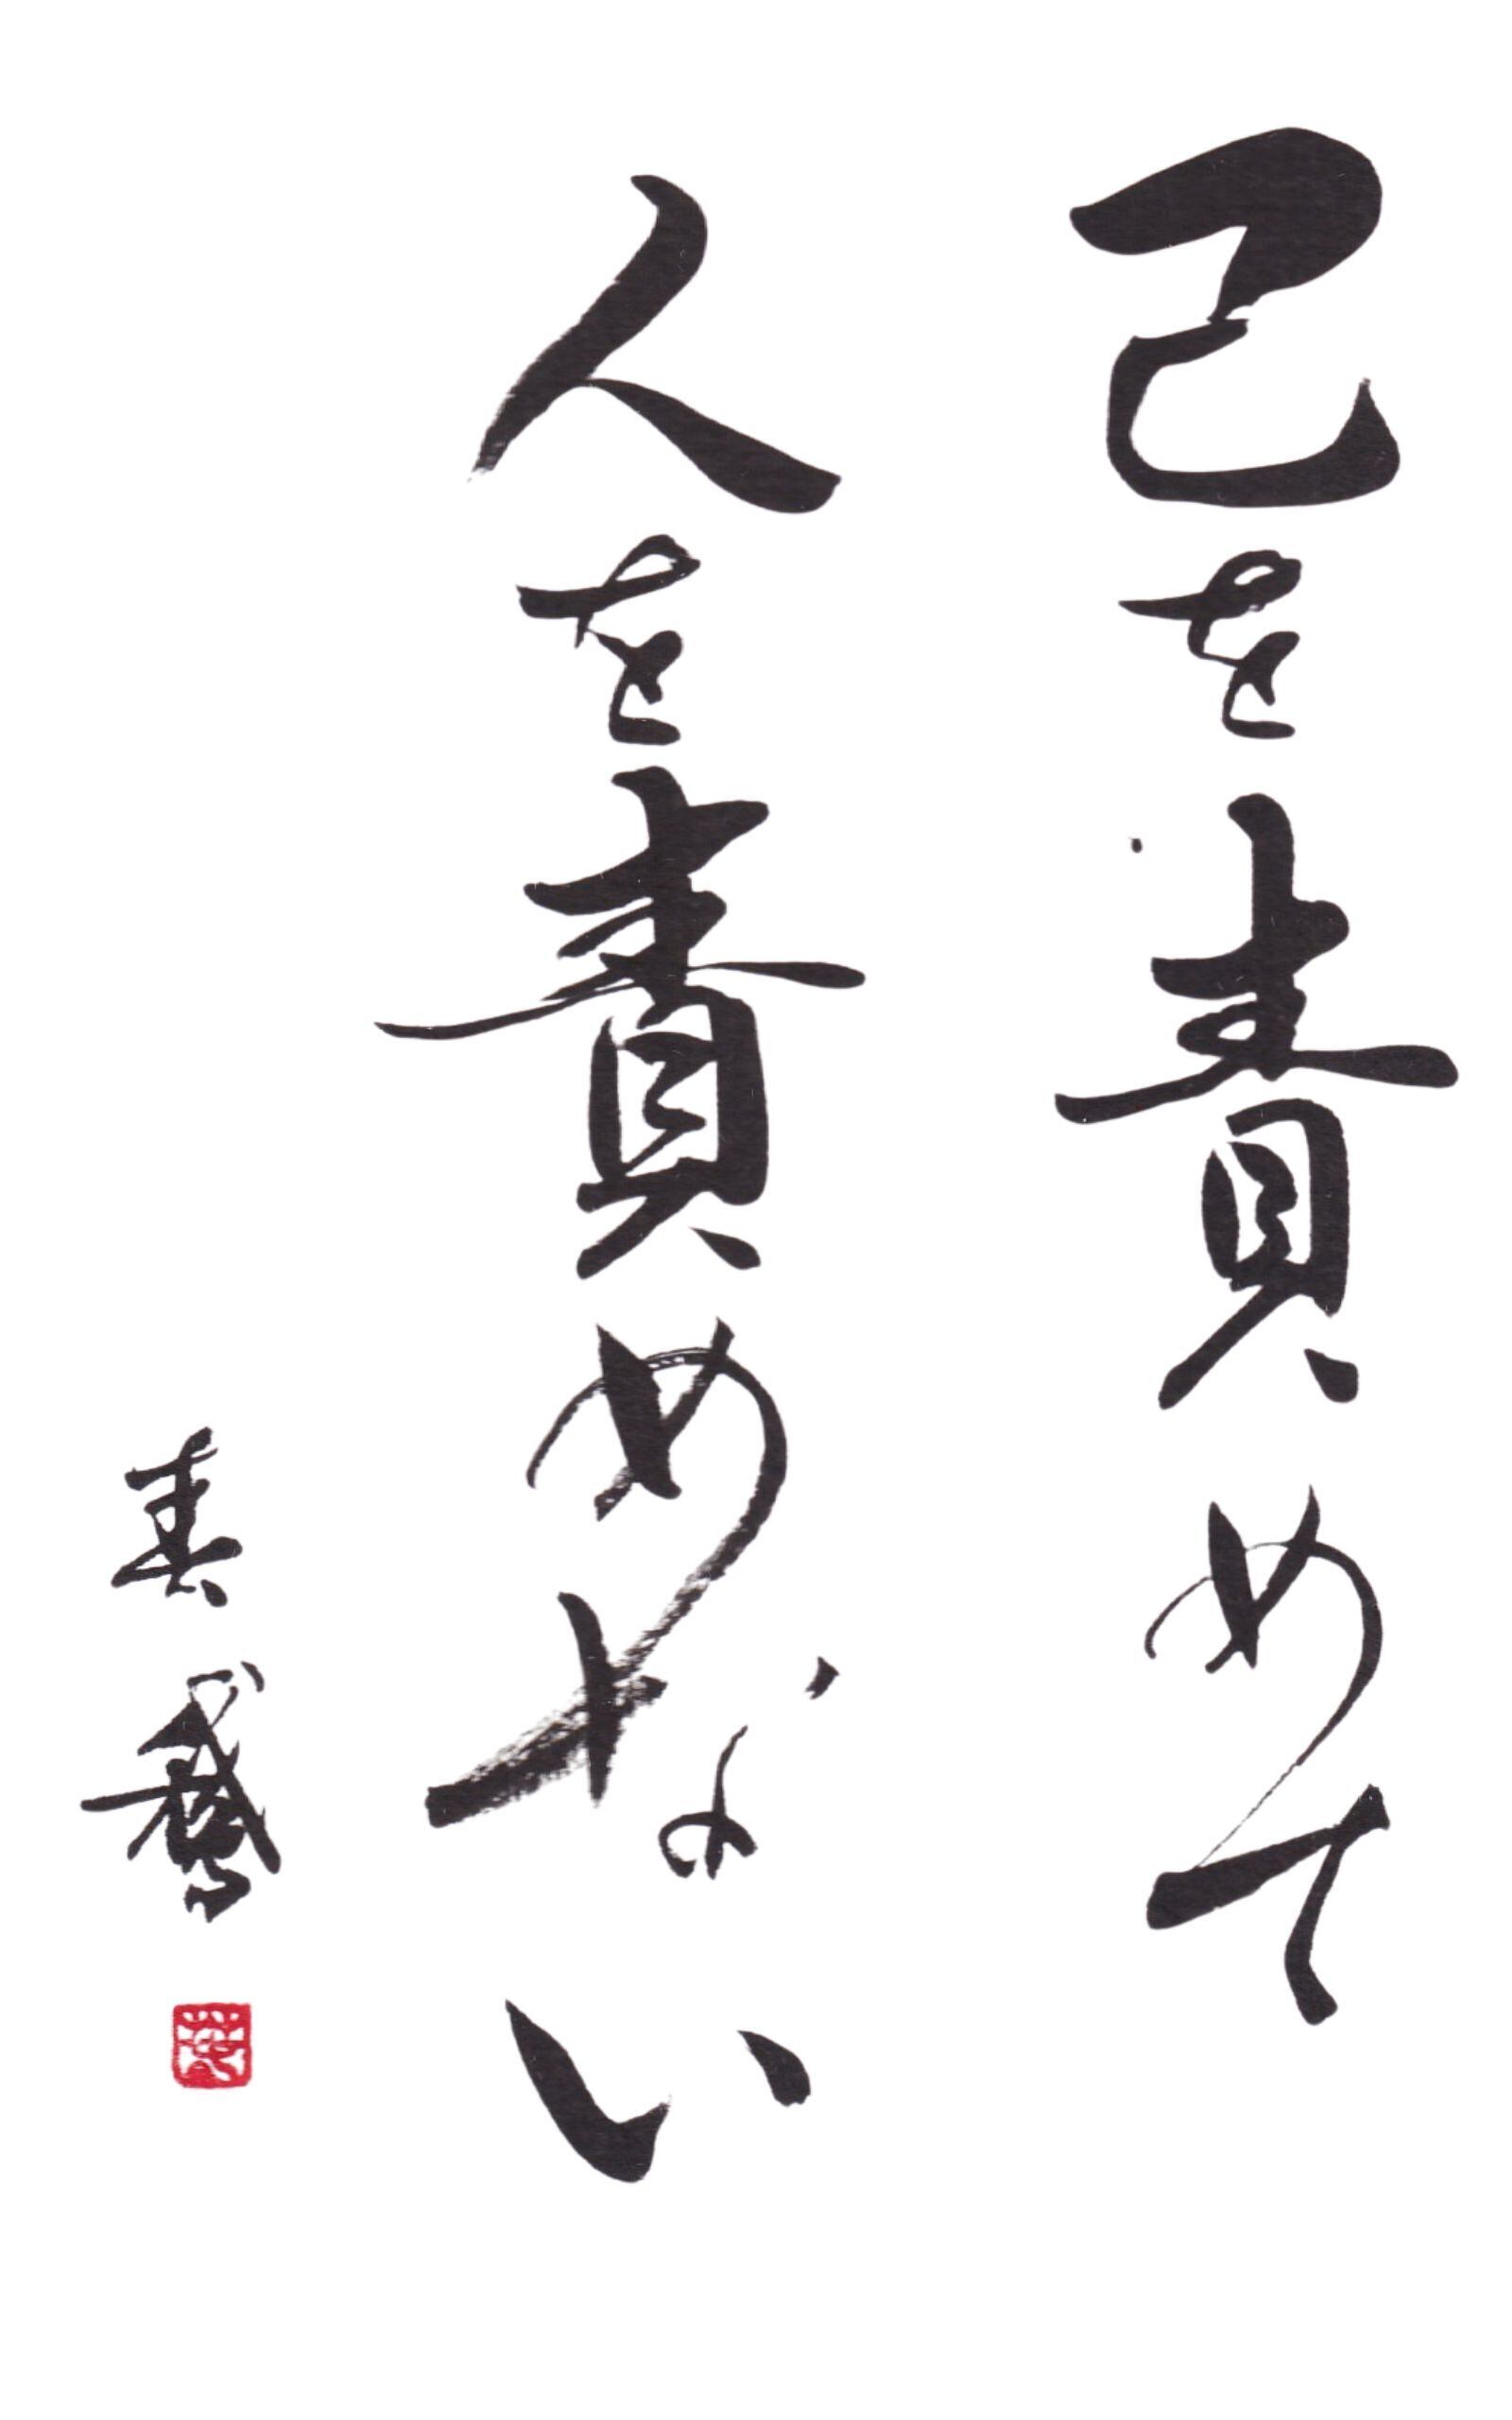 己を責めて
人を責めない